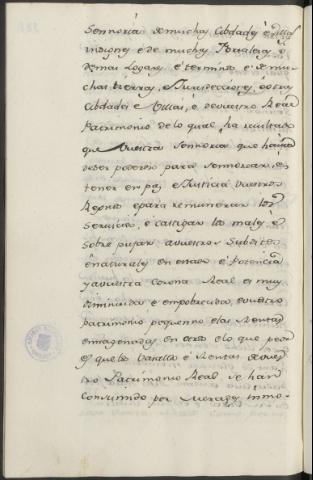 Sennoria de muchas Cibdades è villas
insignes e de muchas Fortalezas è
demas Logares è terminos è de mu-
chas tierras, e Jurisdicciones, è otras
Cibdades e Villas, e de vuestro Real
Patrimonio de lo qual ha resultado
que Vuestra Sennoria que havia
de ser poderoso para sennorear, è
tener en paz e Justicia vuestros
Regnos e para remunerar los
Servicios, è castigar los males è
sobre pujar a vuestros Subditos
è naturales en estado è Potencia
y a vuestra Corona Real es muy
diminuida è empobrecida, è vuestro
patrimonio pequenno e las Rentas
enagenadas en otros e lo que peor
es que los Vasallos è Rentas de vues-
tro Patrimonio Real se han
consumido por mercedes inmo-